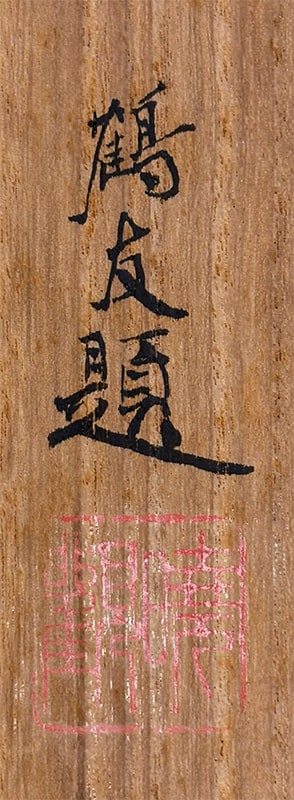 鶴友題